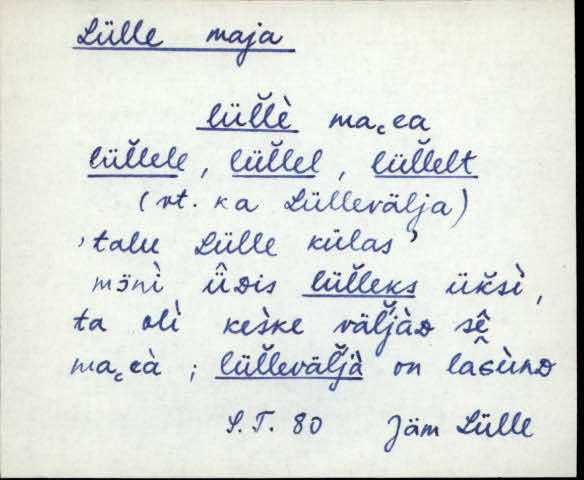 Lülle maja
lül̆l̆è ma꜀ea
lül̆l̆ele, lül̆l̆el, lül̆l̆elt
(vt. ka Lüllevälja)
'talu Lülle külas'
mɔ̈nì ü̂ᴅis lül̆l̆eks ük̆sì,
ta olì kes̀ke väl̆j̆àᴅ sê
ma꜀eà; lül̆l̆eväl̆j̆à on la͔ɢùnᴅ
S.T. 80 Jäm Lülle